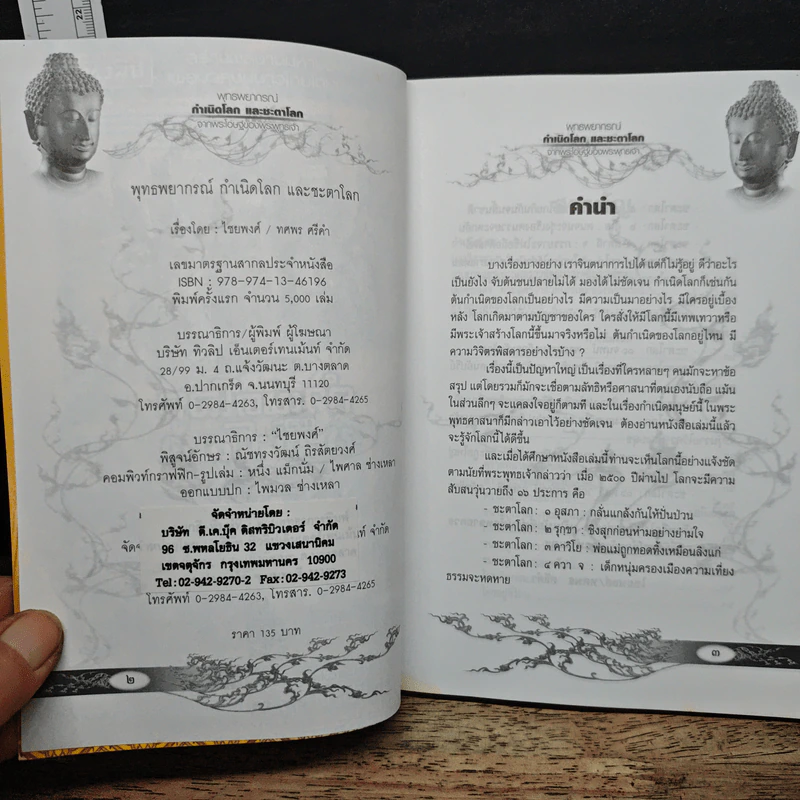 22
พุทธพยากรณ์
กำเนิดโลก และชะตาโลก
จากพระโอษฐ์ของพระพุทธเจ้า
พุทธพยากรณ์ กำเนิดโลก และชะตาโลก
เรื่องโดย : ไชยพงศ์ / ทศพร ศรีคำ
เลขมาตรฐานสากลประจำหนังสือ
ISBN : 978-974-13-46196
พิมพ์ครั้งแรก จำนวน 5,000 เล่ม
บรรณาธิการ/ผู้พิมพ์ ผู้โฆษณา
บริษัท ทิวลิป เอ็นเตอร์เทนเม้นท์ จำกัด
28/99 ม. 4 ถ.แจ้งวัฒนะ ต.บางตลาด
อ.ปากเกร็ด จ.นนทบุรี 11120
โทรศัพท์ 0-2984-4263, โทรสาร. 0-2984-4265
บรรณาธิการ : "ไชยพงศ์"
พิสูจน์อักษร : ณัชทรงวัฒน์ ถิรสัตยวงศ์
คอมพิวท์กราฟฟิก-รูปเล่ม : หนึ่ง แม็กนั่ม / ไพศาล ช่างเหลา
ออกแบบปก : ไพมวล ช่างเหลา
จัดจำหน่ายโดย :
บริษัท ดี.เค.บุ๊ค ดิสทริบิวเตอร์ จำกัด
96 ซ.พหลโยธิน 32 แขวงเสนานิคม
เขตจตุจักร กรุงเทพมหานคร 10900
Tel:02-942-9270-2 Fax:02-942-9273
โทรศัพท์ 0-2984-4263, โทรสาร. 0-2984-4265
ราคา 135 บาท
๒
พุทธพยากรณ์
กำเนิดโลก และชะตาโลก
จากพระโอษฐ์ของพระพุทธเจ้า
คำนำ
บางเรื่องบางอย่าง เราจินตนาการไปได้ แต่ก็ไม่รู้อยู่ ดีว่าอะไร
เป็นยังไง จับต้นชนปลายไม่ได้ มองได้ไม่ชัดเจน กำเนิดโลกก็เช่นกัน
ต้นกำเนิดของโลกเป็นอย่างไร มีความเป็นมาอย่างไร มีใครอยู่เบื้อง
หลัง โลกเกิดมาตามบัญชาของใคร ใครสั่งให้มีโลกนี้มีเทพเทวาหรือ
มีพระเจ้าสร้างโลกนี้ขึ้นมาจริงหรือไม่ ต้นกำเนิดของโลกอยู่ไหน มี
ความวิจิตรพิสดารอย่างไรบ้าง ?
เรื่องนี้เป็นปัญหาใหญ่ เป็นเรื่องที่ใครหลายๆ คนมักจะหาข้อ
สรุป แต่โดยรวมก็มักจะเชื่อตามลัทธิหรือศาสนาที่ตนเองนับถือ แม้น
ในส่วนลึกๆ จะแคลงใจอยู่ก็ตามที และในเรื่องกำเนิดมนุษย์นี้ ในพระ
พุทธศาสนาก็มีกล่าวเอาไว้อย่างชัดเจน ต้องอ่านหนังสือเล่มนี้แล้ว
จะรู้จักโลกนี้ได้ดีขึ้น
และเมื่อได้ศึกษาหนังสือเล่มนี้ท่านจะเห็นโลกนี้อย่างแจ้งชัด
ตามนัยที่พระพุทธเจ้ากล่าวว่า เมื่อ ๒๕๐๐ ปีผ่านไป โลกจะมีความ
สับสนวุ่นวายถึง ๑๖ ประการ คือ
- ชะตาโลก : ๑ อุสภา : กลั่นแกล้งกันให้ปั่นป่วน
- ชะตาโลก : ๒ รุกขา : ชิงสุกก่อนห่ามอย่างย่ามใจ
- ชะตาโลก : ๓ คาวิโย : พ่อแม่ถูกทอดทิ้งเหมือนลิงแก่
- ชะตาโลก : ๔ ควา จ : เด็กหนุ่มครองเมืองความเที่ยง
ธรรมจะหดหาย
๓